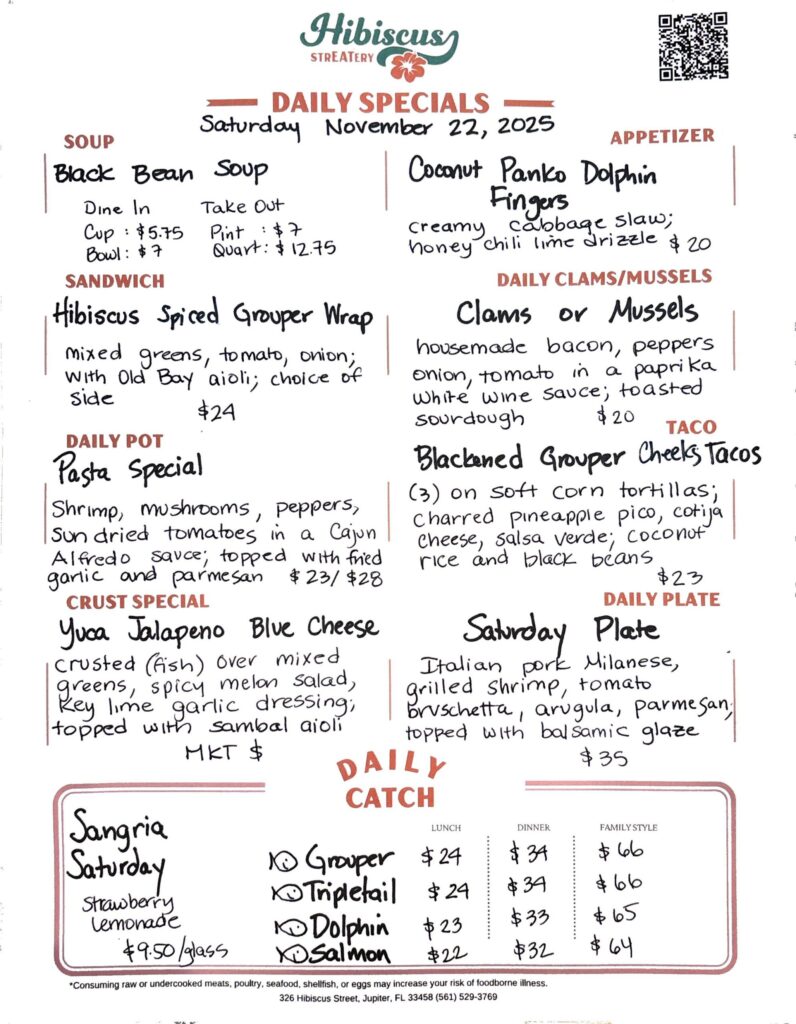 Hibiscus
STREATERY
DAILY SPECIALS
Saturday November 22, 2025
SOUP
Black Bean Soup
Dine In Take Out
Cup : $5.75 Pint : $7
Bowl : $7 Quart : $12.75
APPETIZER
Coconut Panko Dolphin
Fingers
creamy cabbage slaw;
honey chili lime drizzle $20
SANDWICH
Hibiscus Spiced Grouper Wrap
mixed greens, tomato, onion;
with Old Bay aioli; choice of
side
$24
DAILY CLAMS/MUSSELS
Clams or Mussels
housemade bacon, peppers
onion, tomato in a paprika
white wine sauce; toasted
sourdough $20
DAILY POT
Pasta Special
Shrimp, mushrooms, peppers,
sun dried tomatoes in a Cajun
Alfredo sauce; topped with fried
garlic and parmesan $23/$28
TACO
Blackened Grouper Cheeks Tacos
(3) on soft corn tortillas;
charred pineapple pico, cotija
cheese, salsa verde; coconut
rice and black beans
$23
CRUST SPECIAL
Yuca Jalapeno Blue Cheese
crusted (fish) over mixed
greens, spicy melon salad,
key lime garlic dressing;
topped with sambal aioli
MKT $
DAILY PLATE
Saturday Plate
Italian pork Milanese,
grilled shrimp, tomato
bruschetta, arugula, parmesan;
topped with balsamic glaze
$35
DAILY
CATCH
Sangria
Saturday
Strawberry
Lemonade
$9.50/glass
LUNCH DINNER FAMILY STYLE
Grouper $24 $34 $66
Tripletail $24 $34 $66
Dolphin $23 $33 $65
Salmon $22 $32 $64
*Consuming raw or undercooked meats, poultry, seafood, shellfish, or eggs may increase your risk of foodborne illness.
326 Hibiscus Street, Jupiter, FL 33458 (561) 529-3769